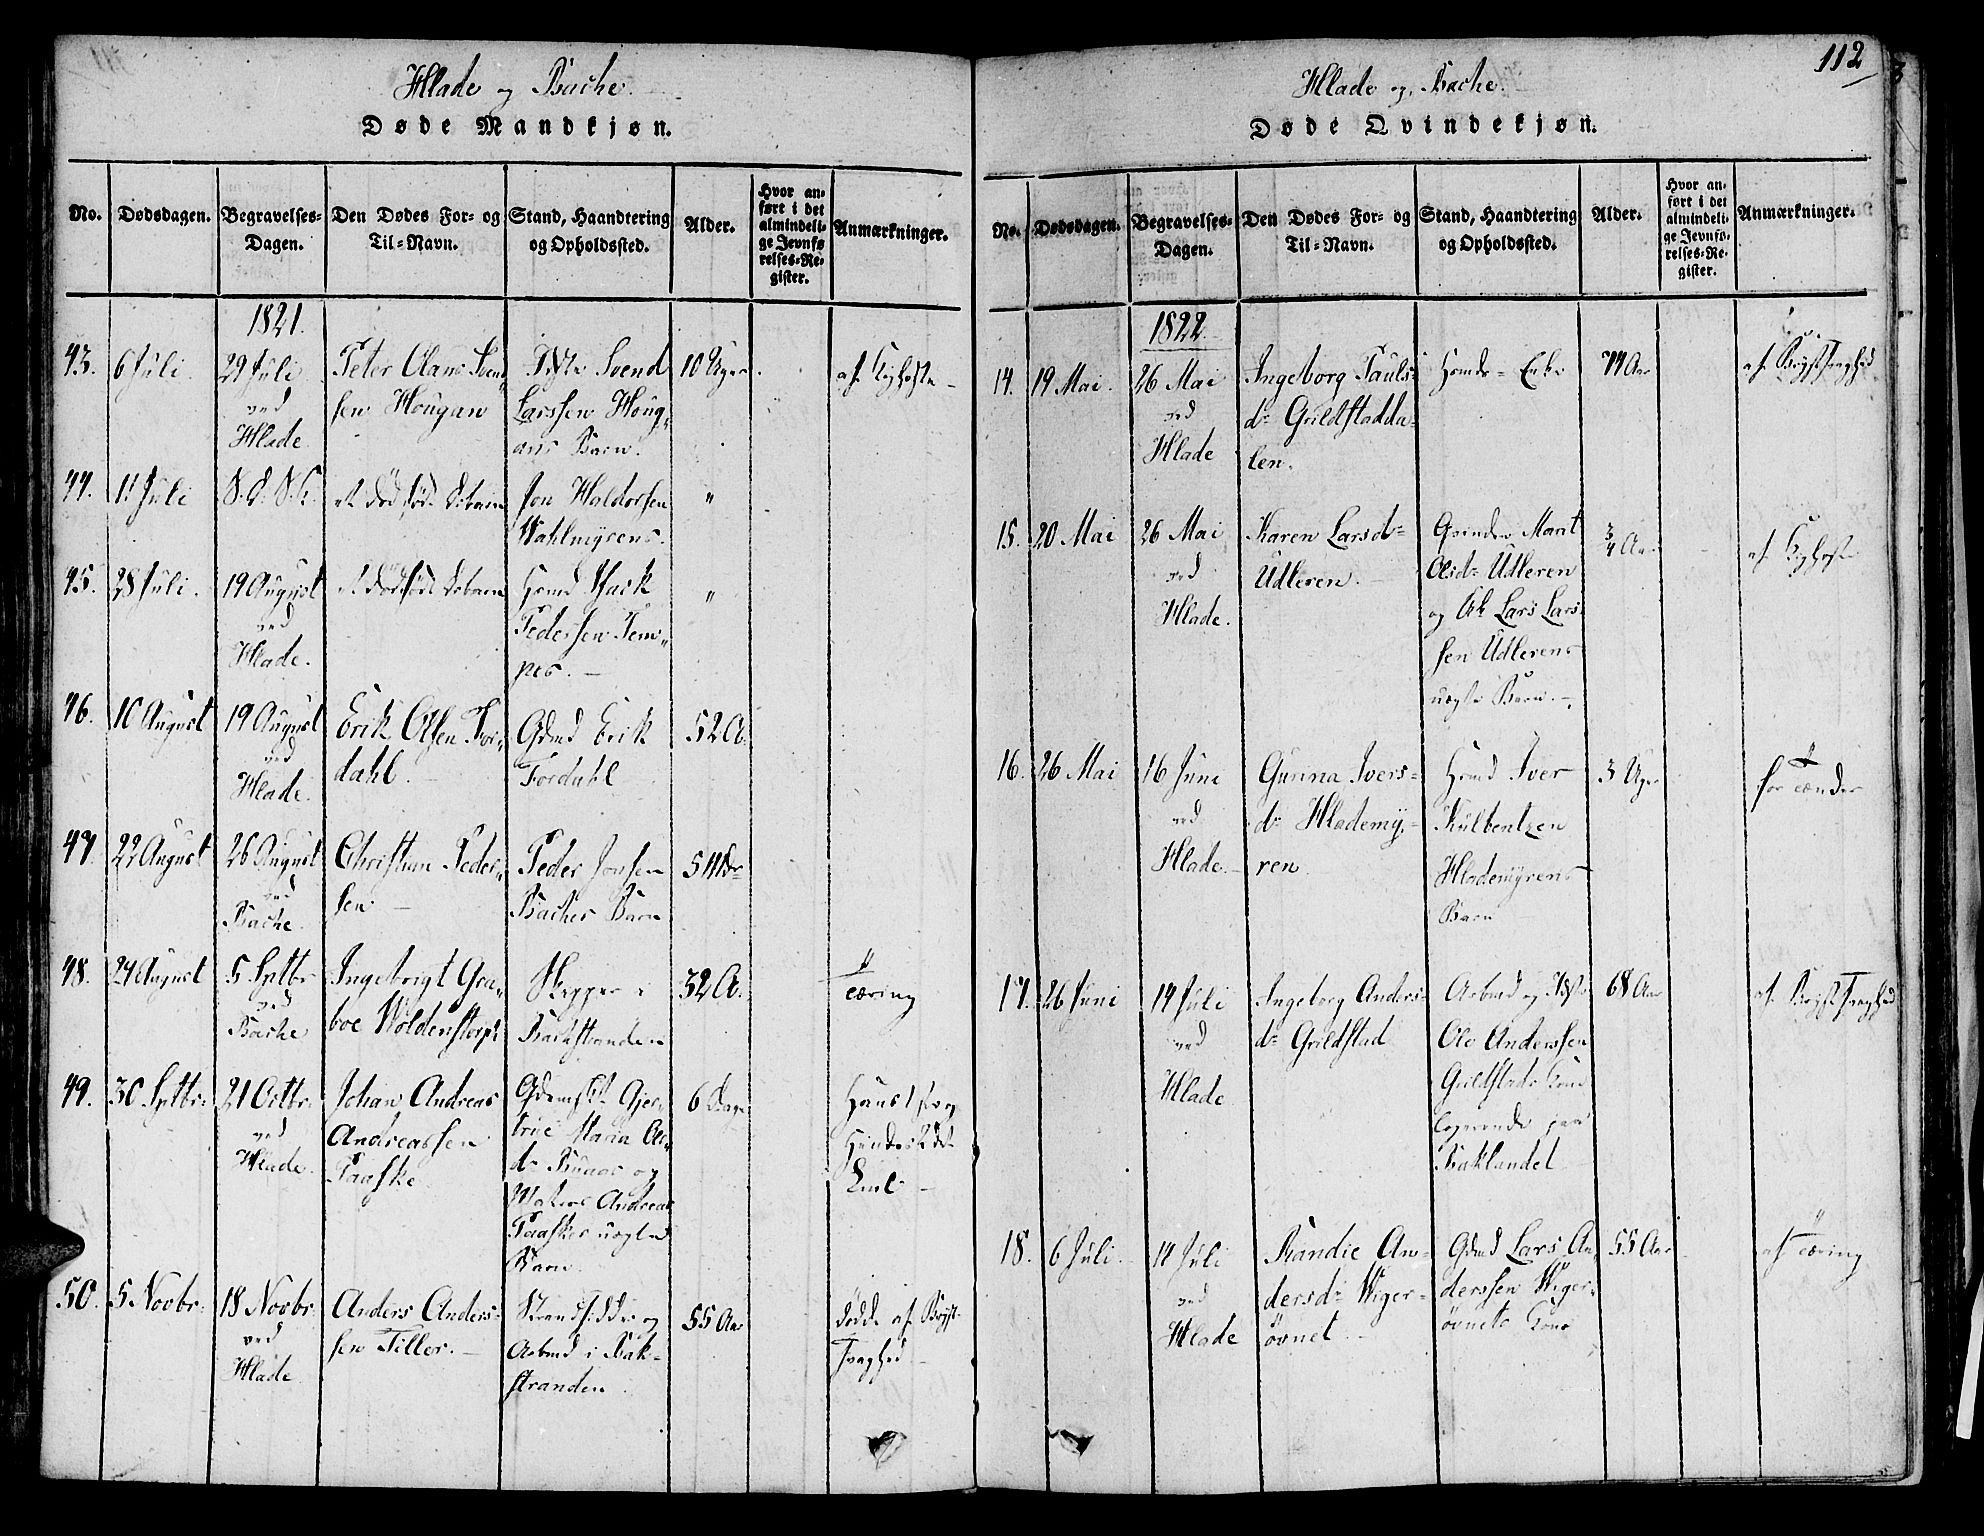 Hlade og Bache.
Døde Mandkjøn.
No.
Dødsdagen.
Begravelses=
Dagen.
Den Dødes For= og
Til=Navn.
Stand, Haandtering
og Opholdssted.
Alder.
Hvor an=
ført i det
almindeli=
ge Jevnfø
relses=Re=
gister.
Anmærkninger.
1821.
43.
6 Juli
29 Juli
ved
Hlade
Peter Olaus Svend
sen Hougan
Svend
Larssen Houg„
ans Barn.
10 Uger
af Kighoste
44.
11 Juli
S. d. S. K.
et dødfødt Dbarn
Jon Haldorsen
Wahlmyrens.
„
45.
28 Juli.
19 August
ved
Hlade.
et dødfødt Dbarn
Huusmd
Pedersen Tem„
pes.
„
46.
10 August
19 August
ved
Hlade.
Erik Olsen For„
dahl.
Gdmd Erik
Fordahl
52 A.
47.
22 August
26 August
ved
Bache.
Christian Peder„
sen
Peder Jonsen
Baches Barn
5 Mdr
48.
24 August
5 Septbr
ved
Bache
Ingebrigt Gra„
boe Woldenstorph
Skipper i
Bachstranden
32 A.
tæring
49.
30 Septbr:
21 Octbr:
ved
Hlade.
Johan Andreas
Andreassen
Paaske
Gjer„
true Maria Ols„
dr Buaas og
Andreas
Paaskes uægte
Barn.
6 Dage
50.
5 Novbr:
18 Novbr:
ved
Hlade
Anders Anders=
sen Tiller.
Strandsidder og
Arbmd i Bak=
stranden
55 Aar
døde af Bryst=
svaghed
112
Hlade og Bache.
Døde Qvindekjøn.
No.
Dødsdagen.
Begravelses=
Dagen.
Den Dødes For= og
Til=Navn.
Stand, Haandtering
og Opholdssted.
Alder.
Hvor an=
ført i det
almindeli=
ge Jevnfø=
relses=Re=
gister.
Anmærkninger.
1822.
14.
19 Mai.
26 Mai
ved
Hlade
Ingeborg Pauls=
dr Grildstadda=
len.
Huusmds= Enke
74 Aar
af Brystsvaghed
15.
20 Mai
26 Mai
ved
Hlade.
Karen Larsdr
Udleren.
Qvinden Marit
Olsdr Udleren
og Lars Lars
sen Udlerens
uægte Barn.
3/4 Aar
af Kighoste
16.
26 Mai
16 Juni
ved
Hlade.
Gunna Ivers=
dr Hlademy=
ren
Huusmd Iver
Kulbentzen
Hlademyrens
Barn
3 Uger
for tænder
17.
26 Juni
14 Juli
ved
Hlade
Ingeborg Anders
dr Grildstad
Arbmd og
Ole Anderssen
Grildstads Kone
logerende paa
Baklandet
68 Aar
af Brystsvaghed
18.
6 Juli.
14 Juli
ved
Hlade
Randie An=
dersdr Wiger=
øvnet
Gdmd Lars An
derssen Wiger=
øvnets Kone
55 Aar
af tæring